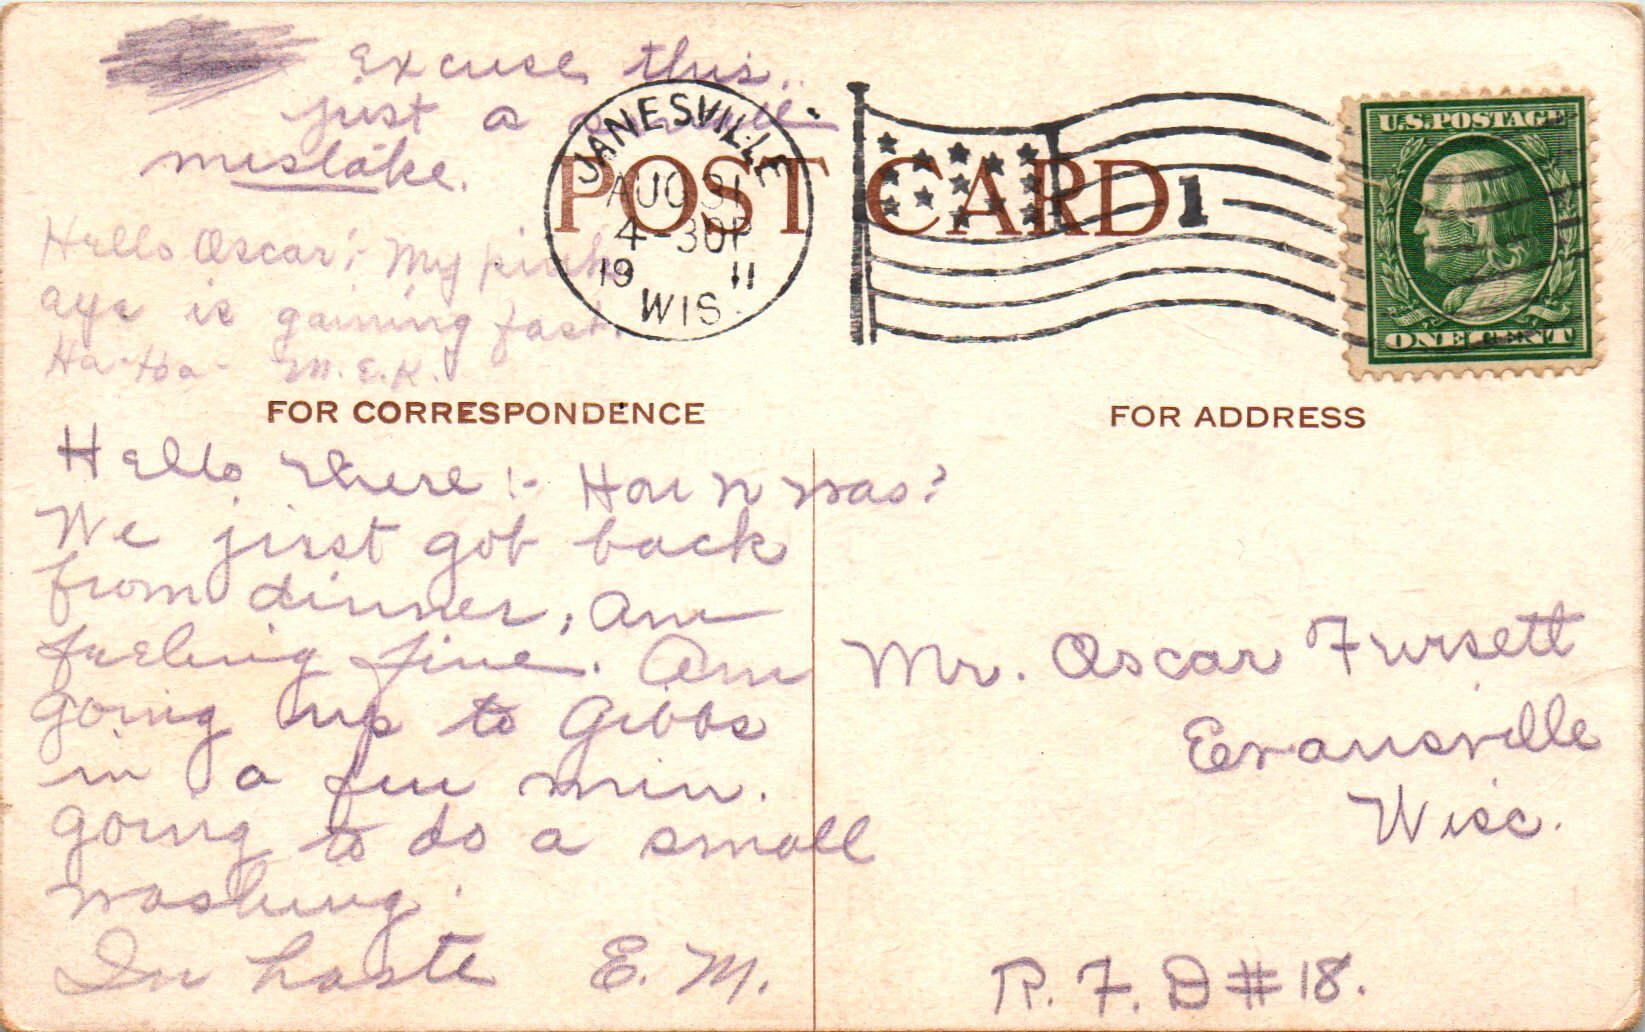 Excuse this..
just a
mistake.
JANESVILLE
AUG 31
4-30P
1911
WIS.
POST CARD
1
U.S.POSTAGE
ONE CENT
Hello Oscar! My pink
aye is gaining fast.
Ha-Ha- M.E.K.
FOR CORRESPONDENCE
FOR ADDRESS
Hello there!- Hou n was?
We jist got back
from dinner, am
feeling fine. Am
going up to Gibbs
in a few min.
going to do a small
washing.
In haste E. M.
Mr. Oscar Fursett
Evansville
Wisc.
R. F. D # 18.